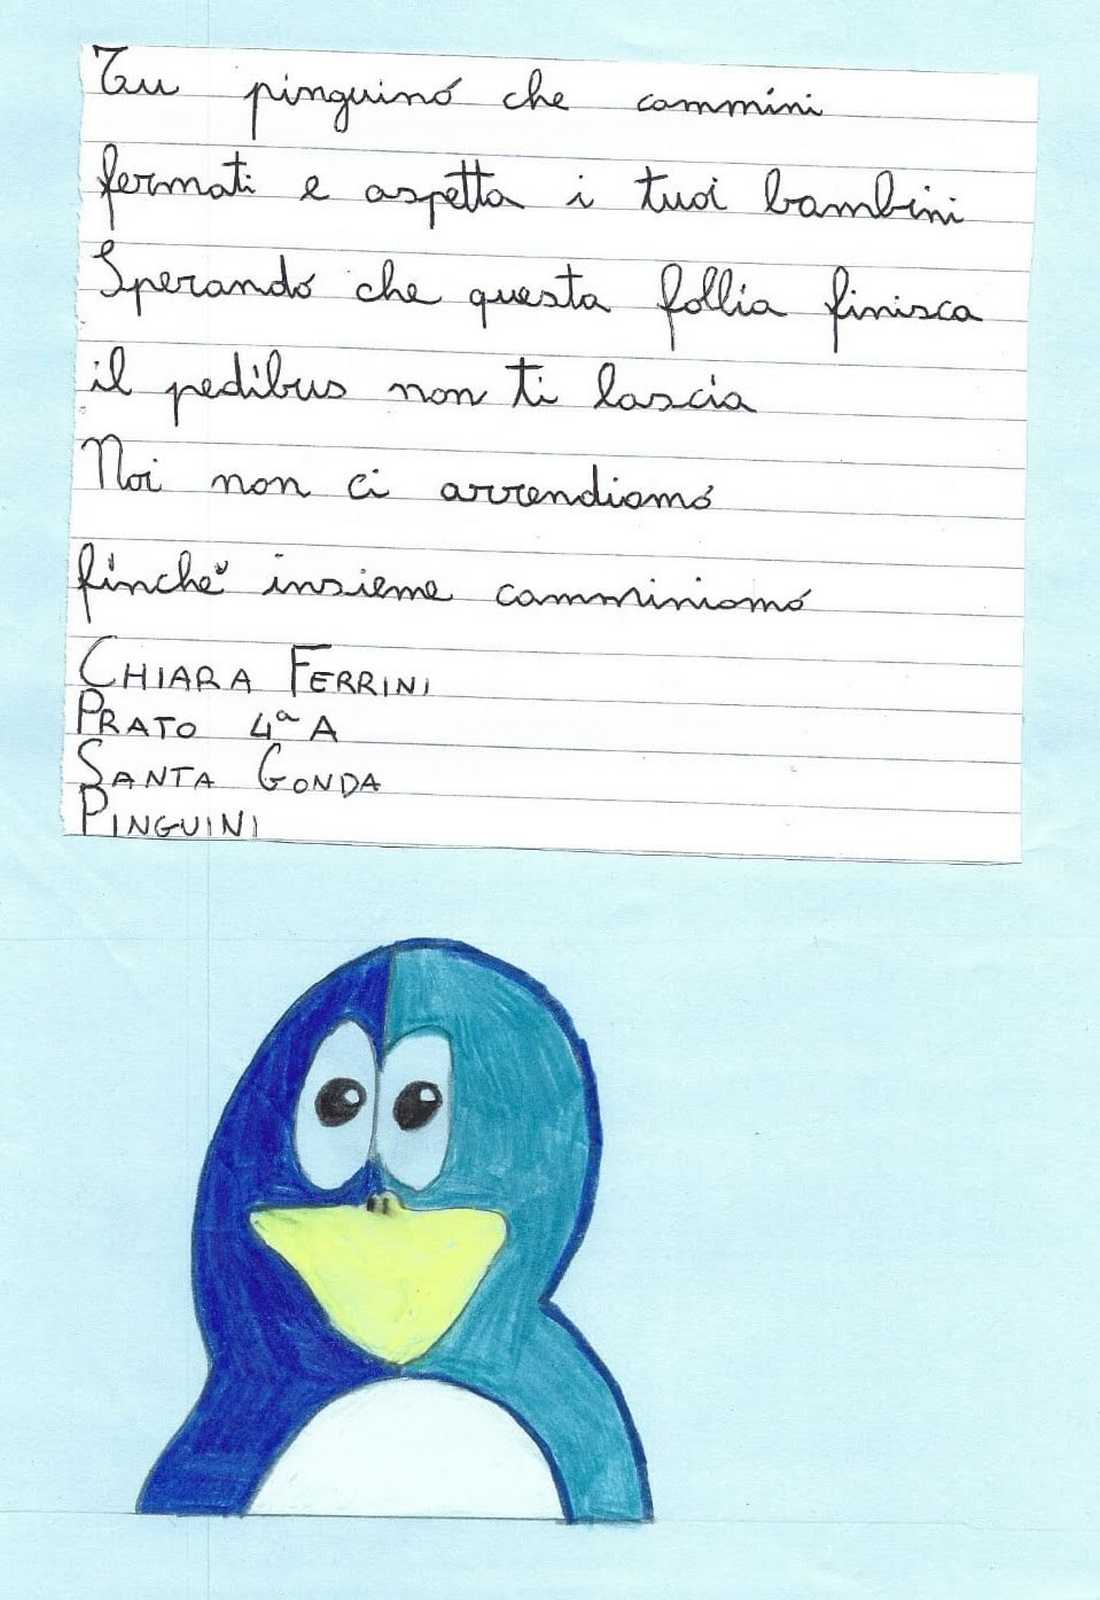 Tu pinguino che cammini
fermati e aspetta i tuoi bambini
Sperando che questa follia finisca
il pedibus non ti lascia
Noi non ci arrendiamo
finchè insieme camminiamo
CHIARA FERRINI
PRATO 4ª A
SANTA GONDA
PINGUINI